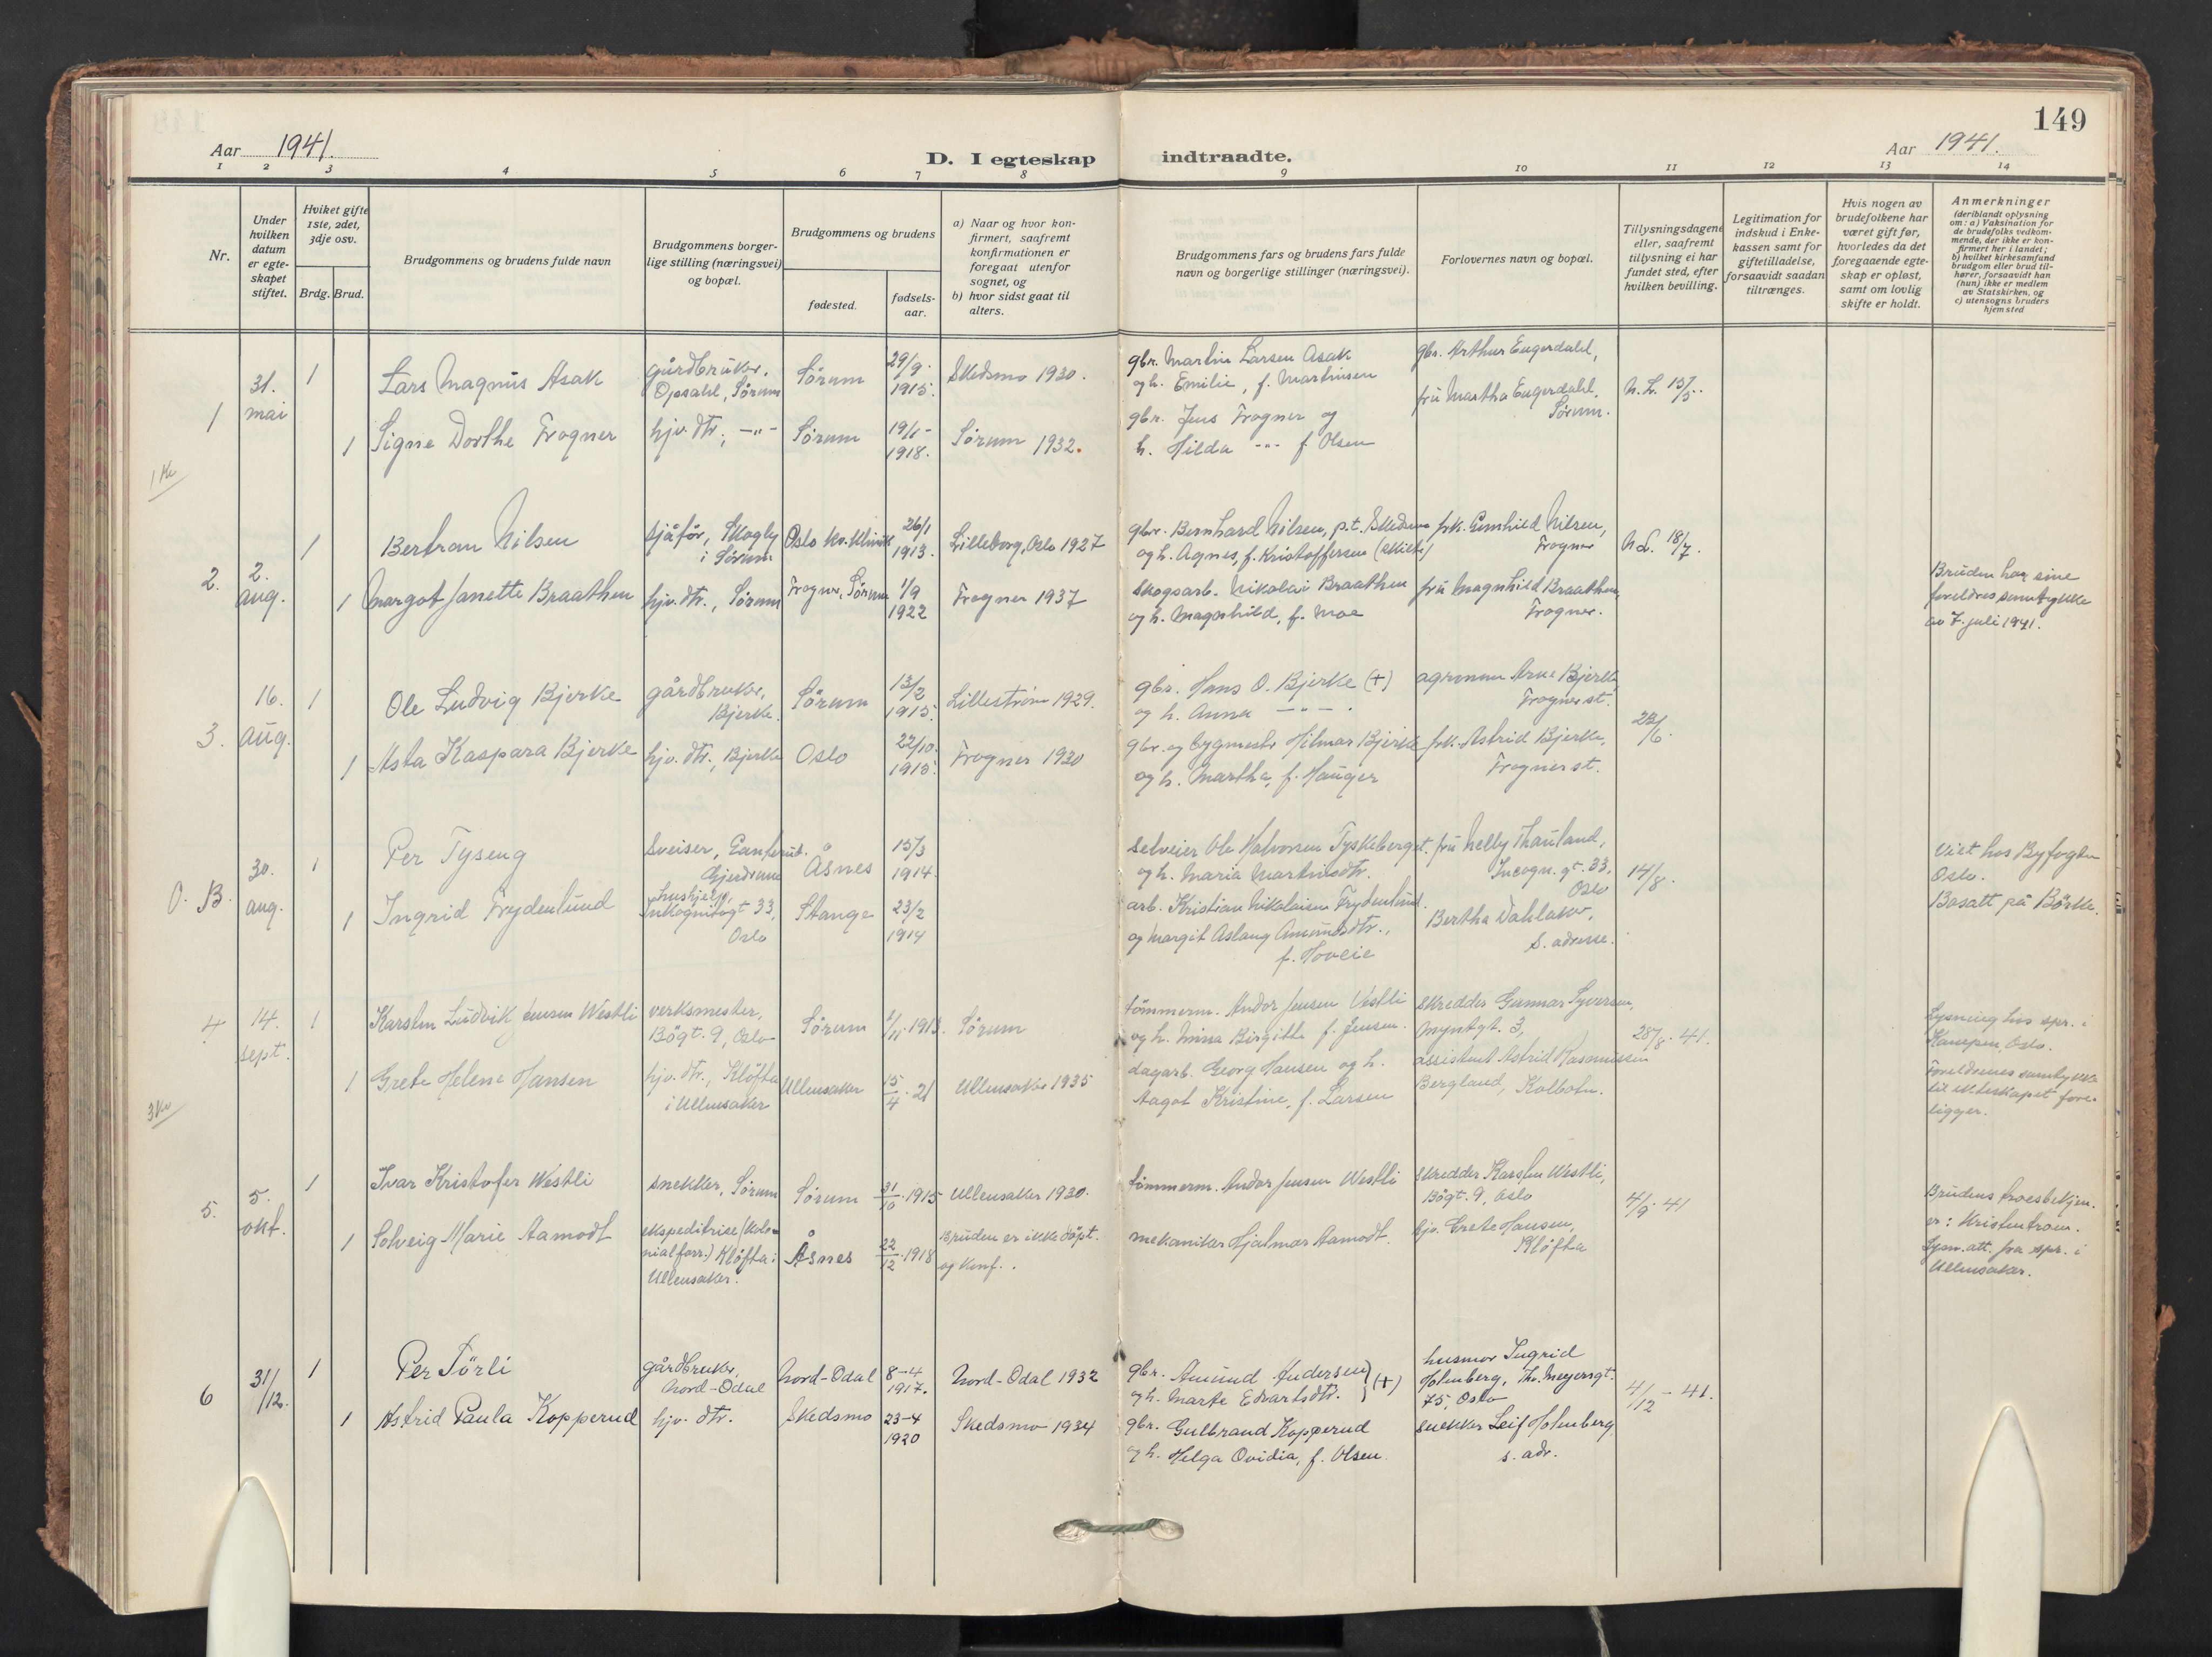 149
Aar 1941.
D. I egteskap indtraadte.
Aar 1941.
1 2 3 4 5 6 7 8 9 10 11 12 13 14
Nr.
Under
hvilken
datum
er egte-
skapet
stiftet.
Hviket gifte
1ste, 2det,
3dje osv.
Brdg. Brud.
Brudgommens og brudens fulde navn
Brudgommens borger-
lige stilling (næringsvei)
og bopæl.
Brudgommens og brudens
fødested.
fødsels-
aar.
a) Naar og hvor kon-
firmert, saafremt
konfirmationen er
foregaat utenfor
sognet, og
b) hvor sidst gaat til
alters.
Brudgommens fars og brudens fars fulde
navn og borgerlige stillinger (næringsvei).
Forlovernes navn og bopæl.
Tillysningsdagene
eller, saafremt
tillysning ei har
fundet sted, efter
hvilken bevilling.
Legitimation for
indskud i Enke-
kassen samt for
giftetilladelse,
forsaavidt saadan
tiltrænges.
Hvis nogen av
brudefolkene har
været gift før,
hvorledes da det
foregaaende egte-
skap er opløst,
samt om lovlig
skifte er holdt.
Anmerkninger
(deriblandt oplysning
om: a) Vaksination for
de brudefolks vedkom-
mende, der ikke er kon-
firmert her i landet;
b) hvilket kirkesamfund
brudgom eller brud til-
hører, forsaavidt han
(hun) ikke er medlem
av Statskirken, og
c) utensogns bruders
hjemsted
1
31.
mai
1
Lars Magnus Asak
gårdbruker,
Opsahl, Sörum
Sörum
29/9.
1915.
Skedsmo 1930.
gbr. Martin Larsen Asak
og h. Emilie, f. Martinsen
gbr. Arthur Engerdahl,
fru Martha Engerdahl,
Sörum.
N. L. 13/5.
1
Signe Dorthe Frogner
hjv. dtr., -"-
Sörum
19/1-
1918.
Sörum 1932.
gbr. Jens Frogner og
h. Hilda -"- f. Olsen
1 Kr
2.
2.
aug.
1
Bertran Nilsen
sjåför, Skogly
i Sörum
Oslo kv.klinik
26/1
1913.
Lilleborg, Oslo 1927
gbr. Bernhard Nilsen, p.t. Skedsmo
og h. Agnes, f. Kristoffersen (skilt)
frk. Gunhild Nilsen,
Frogner
N.L. 18/7.
1
Margot Janette Braathen
hjv. dtr., Sörum
Frogner, Sörum
1/9
1922
Frogner 1937
Skogsarb. Nikolai Braathen
og h. Magnhild, f. Moe
fru Magnhild Braathen,
Frogner.
Bruden har sine
foreldres samtykke
av 7. juli 1941.
3.
16.
aug.
1
Ole Ludvig Bjerke
gårdbruker,
Bjerke.
Sörum
13/2
1915.
Lilleström 1929.
gbr. Hans O. Bjerke (+)
og h. Anna -"-.
agronom Arne Bjerke,
Frogner st.
1
Asta Kaspara Bjerke
hjv. dtr., Bjerke
Oslo
22/10.
1915.
Frogner 1930
gbr. og bygmestr Hilmar Bjerke
og h. Martha, f. Hauger
frk. Astrid Bjerke,
Frogner st.
O. B.
30.
aug.
1
Per Tyseng
Sveiser,
Gjerdrum
Åsnes
15/3
1914.
Selveier Ole Halvorsen Tyskeberget.
og h. Maria Martinsdtr.
fru Nelly Thauland,
Incogn. gt. 33.
Oslo
14/8.
Viet hos Byfogden
Oslo.
Bosatt på Börke.
1
Ingrid Frydenlund
hushjelp,
Inkognitogt 33,
Oslo
Stange
23/2
1914
arb. Kristian Nikolaisen Frydenlund.
og Margit Aslaug Amundsdtr.,
f. Hoveie
Bertha
s. adresse.
4
14.
sept.
1
Karsten Ludvik Jensen Westli
verksmester,
Bögt. 9, Oslo
Sörum
1/11. 1913.
Sörum
tömmerm. Andor Jensen Vestli
og h. Mina Birgitte f. Jensen.
skredder Gunnar Syversen,
Myntgt. 3,
28/8. 41.
Lysning hos spr. i
Kampen, Oslo.
Foreldrenes samtykke
til ekteskapet fore-
ligger.
1
Grete Helene Hansen
hjv. dtr., Klöfta
i Ullensaker
Ullensaker
15/4. 21
Ullensaker 1935
dagarb. Georg Hansen og h.
Aagot Kristine, f. Larsen
assistent Astrid Rasmussen
Bergland, Kolbotn.
3 Kr
5.
5.
okt.
1
Ivar Kristofer Westli
snekker, Sörum
Sörum
31/10. 1915
Ullensaker 1930.
tömmerm. Andor Jensen Westli
skredder Karsten Westli,
Bögt. 9, Oslo
4/9. 41
1
Solveig Marie Aamodt
ekspeditrise (kolo-
nialforr.) Klöfta i
Ullensaker.
Åsnes
22/12. 1918
Bruden er ikke döpt.
og konf.
mekaniker Hjalmar Aamodt.
hjv. Grete Hansen,
Klöfta
Brudens troesbekjen.
er: Kristentroen.
Lysn.att. fra spr. i
Ullensaker.
6
31/12.
1
Per Törli
gårdbruker,
Nord-Odal
Nord-Odal
8-4
1917.
Nord-Odal 1932
gbr. Amund Andersen
og h. Marte Edvartsdtr. } (+)
husmor Ingrid
Holmberg, Th. Meyersgt.
75, Oslo
4/12 - 41.
1
Astrid Paula Kopperud
hjv. dtr.
Skedsmo
23-4
1920
Skedsmo 1934
gbr. Gulbrand Kopperud
og h. Helga Ovidia, f. Olsen.
snekker Leif Holmberg,
s. adr.